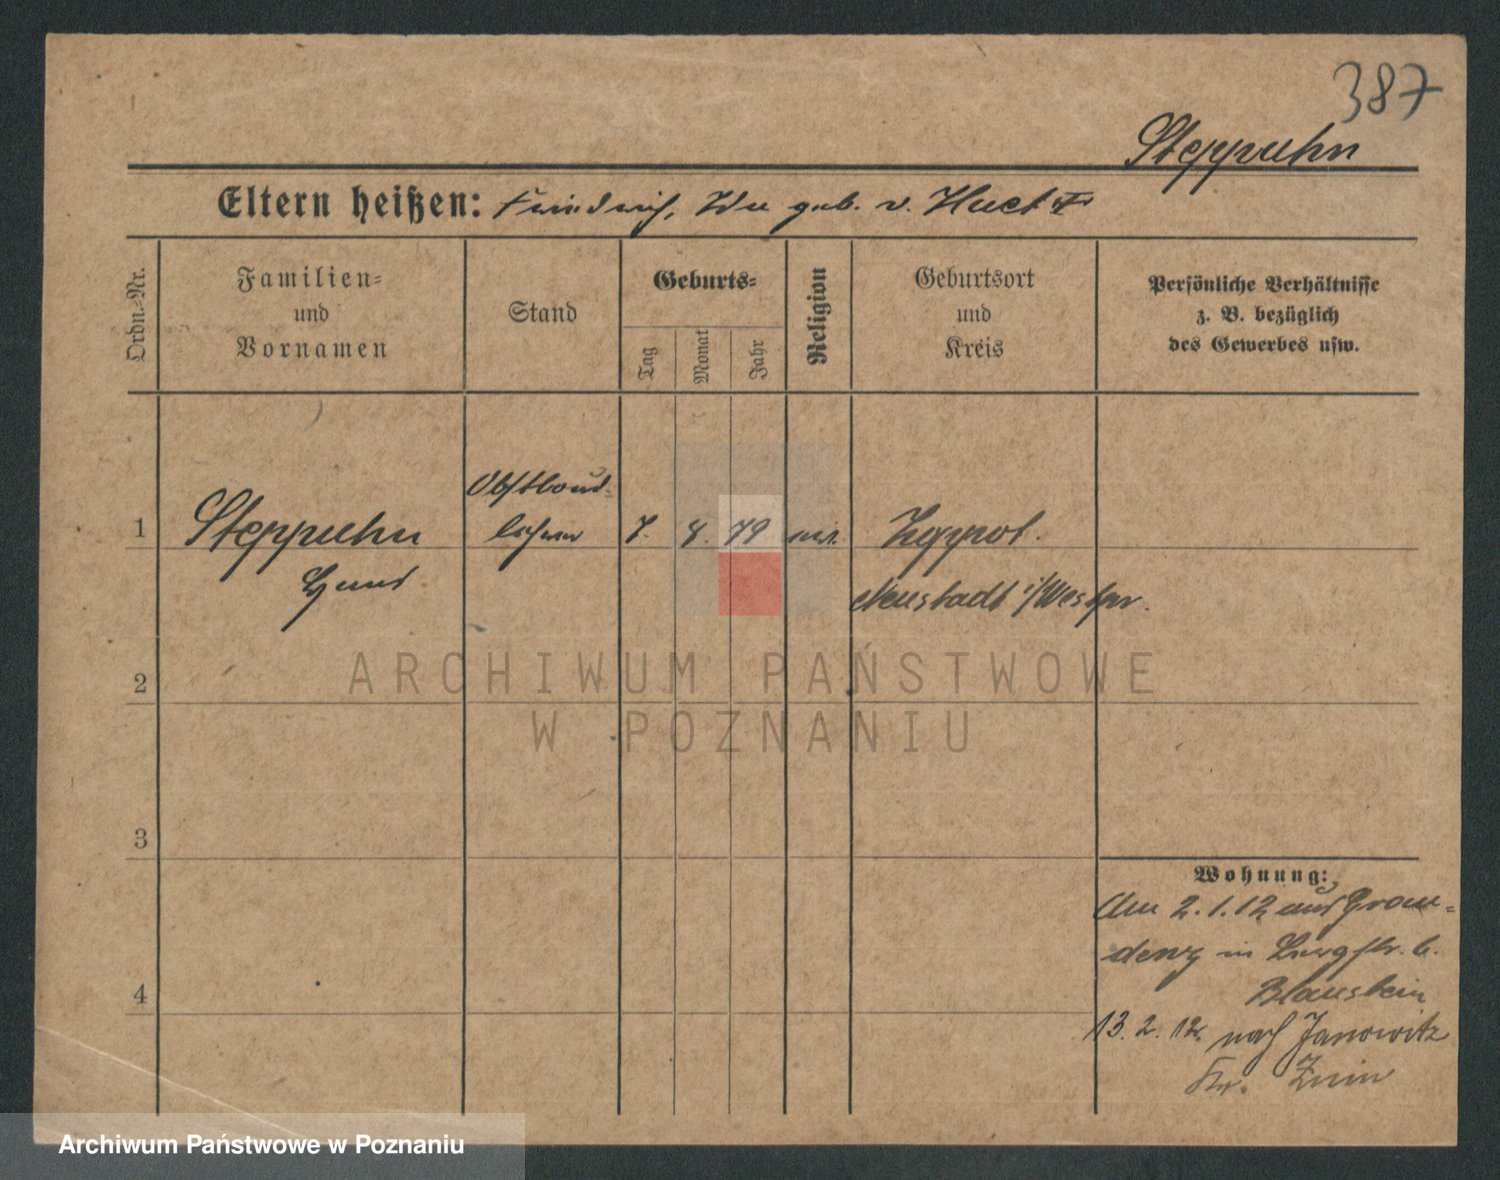 387
Steppuhn
Eltern heißen: Friedrich, Ida geb. v.
Ordn.-Nr.
Familien-
und
Vornamen
Stand
Geburts-
Tag
Monat
Jahr
Religion
Geburtsort
und
Kreis
Persönliche Verhältnisse
z. B. bezüglich
des Gewerbes usw.
1
Steppuhn
Hans
Obstbau-
lehrer
7. 8. 79
Zoppot.
Neustadt i/Westpr.
2
ARCHIWUM PAŃSTWOWE
W POZNANIU
3
4
Wohnung:
Am 2.1.12 aus Grau-
denz in
Blaustein
13. 2. 12. nach Janowitz
Kr. Znin
Archiwum Państwowe w Poznaniu